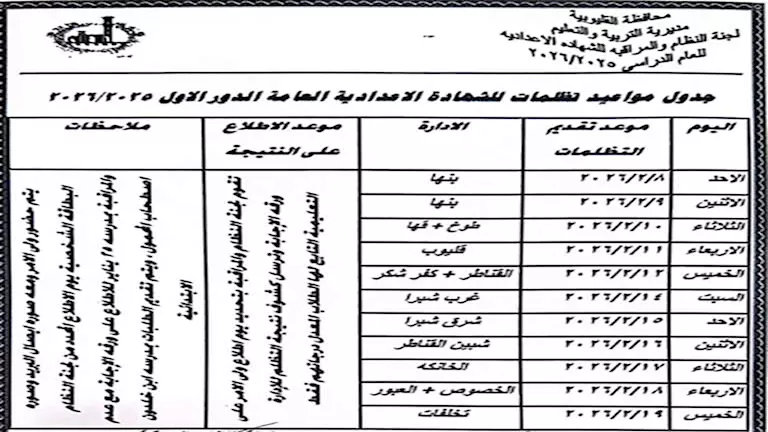 محافظة القليوبية
مديرية التربية والتعليم
لجنة النظام والمراقبه للشهاده الاعداديه
للعام الدراسى ٢٠٢٦/٢٠٢٥
جدول مواعيد تظلمات للشهادة الاعدادية العامة الدور الاول ٢٠٢٦/٢٠٢٥
اليوم موعد تقديم التظلمات الادارة موعد الاطلاع على النتيجة ملاحظات
الاحد ٢٠٢٦/٢/٨ بنها
الاثنين ٢٠٢٦/٢/٩ بنها
الثلاثاء ٢٠٢٦/٢/١٠ طوخ + قها
الاربعاء ٢٠٢٦/٢/١١ قليوب
الخميس ٢٠٢٦/٢/١٢ القناطر + كفر شكر
السبت ٢٠٢٦/٢/١٤ غرب شبرا
الاحد ٢٠٢٦/٢/١٥ شرق شبرا
الاثنين ٢٠٢٦/٢/١٦ شبين القناطر
الثلاثاء ٢٠٢٦/٢/١٧ الخانكه
الاربعاء ٢٠٢٦/٢/١٨ الخصوص + العبور
الخميس ٢٠٢٦/٢/١٩ تخلفات
تقوم لجنة النظام والمراقبة بتحديد يوم اطلاع ولى الامر على
ورقه الإجابة وترسل كشوف نتيجة التظلم للإدارة
التعليمية التابع لها الطلاب المعدل درجاتهم فقط
يتم حضور ولى الامر ومعه صوره ايصال البريد وصوره
البطاقه الشخصية يوم الاطلاع المحدد من لجنة النظام
والمراقبة بمدرسه ١٥ يناير للاطلاع على ورقه الإجابة مع عدم
اصطحاب المحمول، ويتم تقديم الطلبات بمدرسه ابن خلدون
الابتدائية